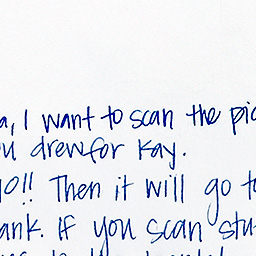 a, I want to scan the pic
u drew for Kay.
!! Then it will go to
ank. If you scan stu